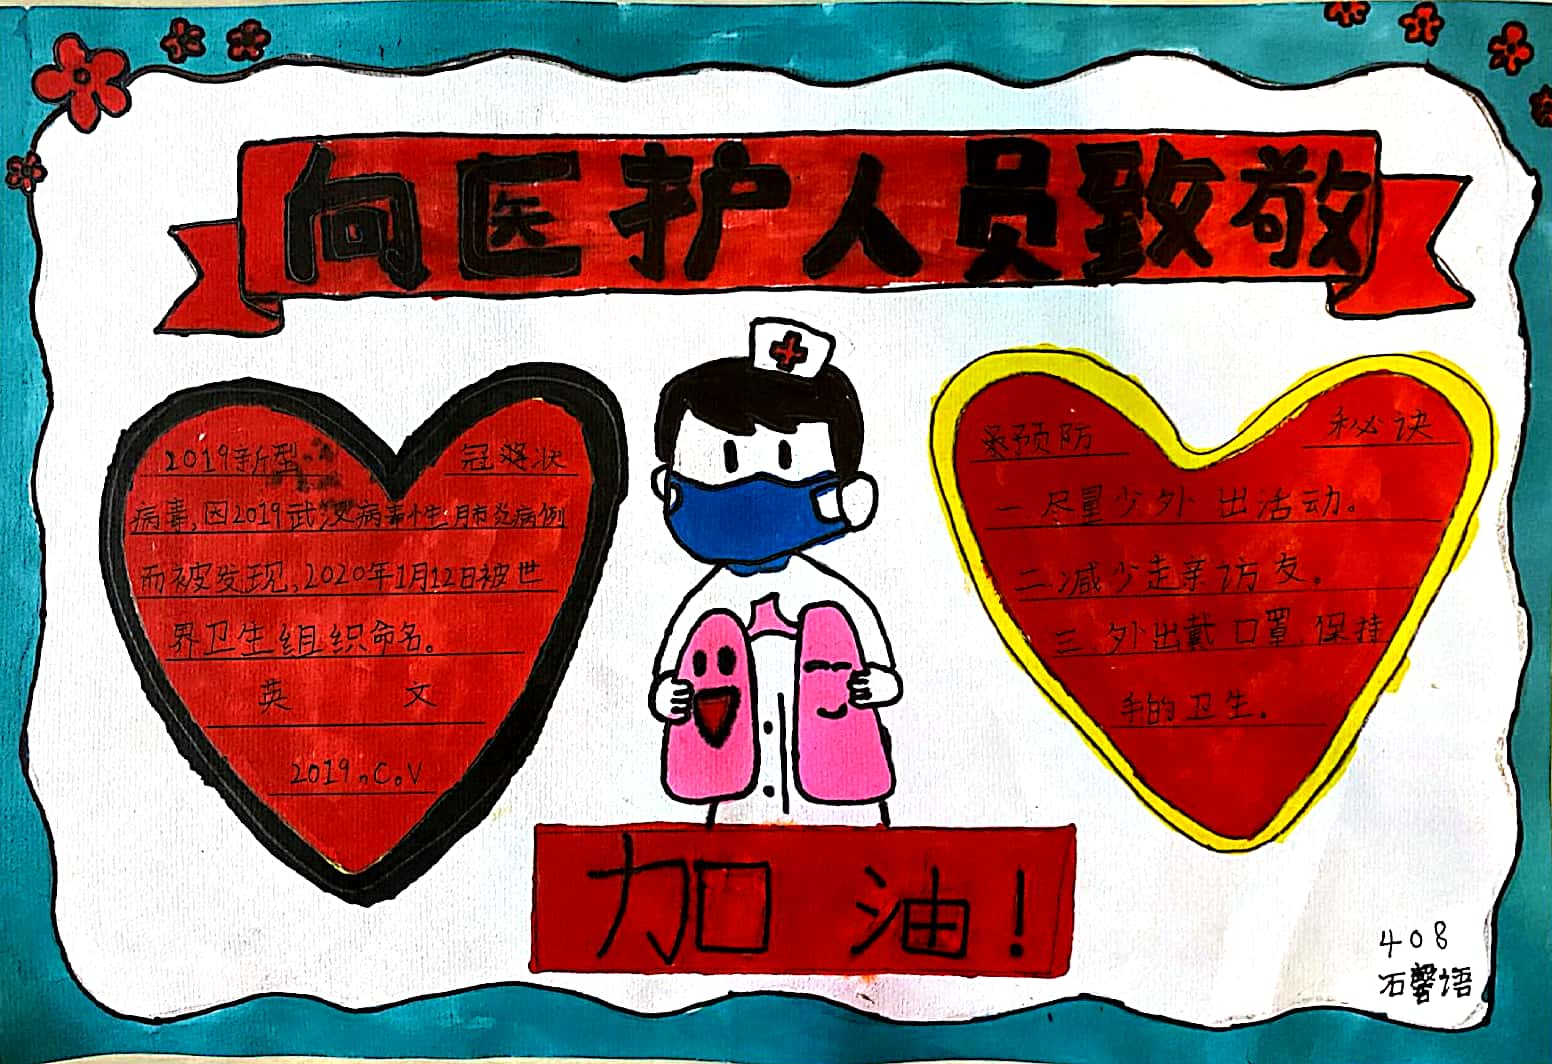 向医护人员致敬
2019新型 冠状
病毒,因2019武汉病毒性肺炎病例
而被发现,2020年1月12日被世
界卫生组织命名。
英 文
2019.C.V
预防 秘诀
一尽量少外出活动。
二减少走亲访友。
三 外出戴口罩 保持
手的卫生。
加油!
408
石馨语